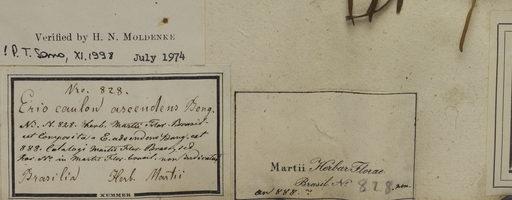 Verified by H. N. MOLDENKE
! P. T. Sano, XI.1998 July 1974
Nro. 828.
Eriocaulon ascendens Bong.
NB. N. 828. herb. Martii Flor. Brasil.
est Composita. E. adscendens Bong. est
888. Catalogi Martii Flor. Brasil, sed
hoc No. in Martii Flor. brasil. non
Brasilia Herb. Martii
KUMMER
Martii Herbar. Florae
Brasil. No. 828. non
an 888. ?